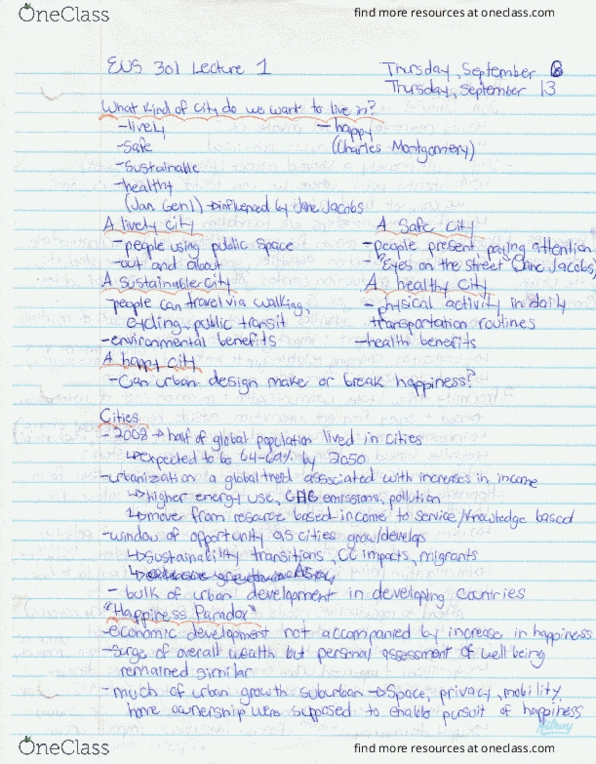 OneClass
find more resources at oneclass.com
EUS 301 Lecture 1
Thursday, September 6
Thursday, September 13
What kind of city do we want to live in?
-lively
-happy
-safe
(Charles Montgomery)
-sustainable
-healthy
(Jan Gehl) → influenced by Jane Jacobs
A lively city
-people using public space
-out and about
A safe city
-people present, paying attention
-"Eyes on the street (Jane Jacobs)
A sustainable city
-people can travel via walking,
cycling, public transit
-environmental benefits
A healthy city
-physical activity in daily
transportation routines
-health benefits
A happy city
-Can urban design make or break happiness?
Cities
-2008 → half of global population lived in cities
↳ expected to be 64-69% by 2050
-urbanization a global trend associated with increases in income
↳ higher energy use, GHG emissions, pollution
↳ move from resource based income to service/knowledge based
-window of opportunity as cities grow/develop
↳ sustainability transitions, CC impacts, migrants
- bulk of urban development in developing countries
"Happiness Paradox"
-economic development not accompanied by increase in happiness
-surge of overall wealth but personal assessment of well being
remained similar
-much of urban growth suburban → space, privacy, mobility,
home ownership were supposed to enable pursuit of happiness
OneClass
find more resources at oneclass.com